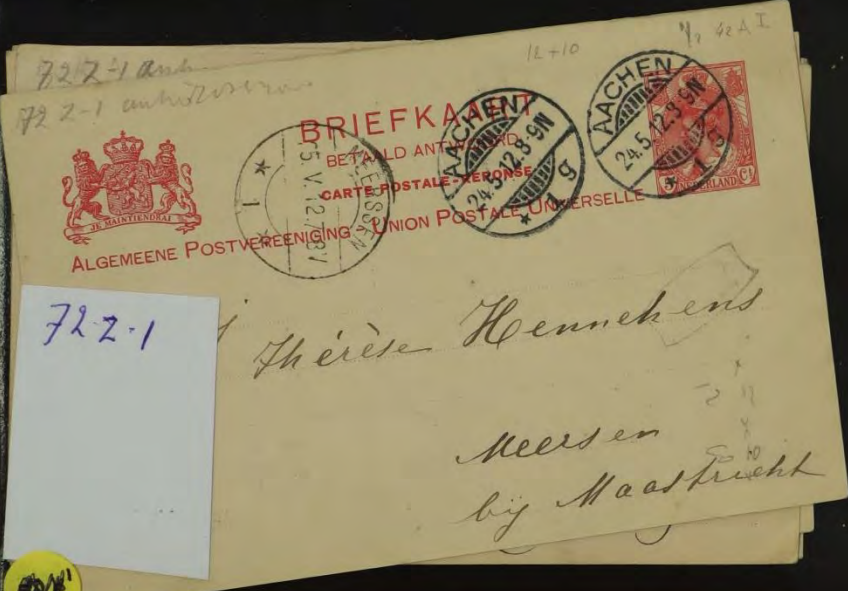 72 Z-1 antw.
72 Z-1
12+10
42 A I
BRIEFKAART
BETAALD ANTWOORD
CARTE POSTALE-REPONSE
ALGEMEENE POSTVEREENIGING UNION POSTALE UNIVERSELLE
JE MAINTIENDRAI
MEERSSEN
25 V. 12.7-8V
1
AACHEN
24.5.12.8-9N
* 1 g
AACHEN
24.5.12.8-9N
* 1 g
NEDERLAND
5 Ct
72-Z-1
Thérèse Hennekens
Meersen
bij Maastricht